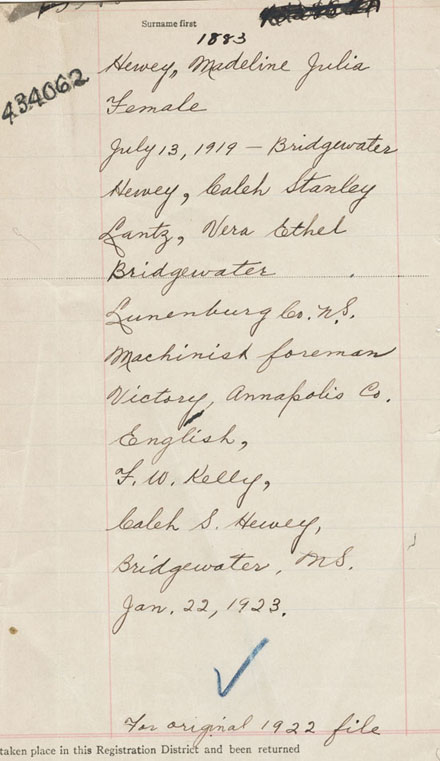 Surname first
1883
434062
Hewey, Madeline Julia
Female
July 13, 1919 — Bridgewater
Hewey, Caleh Stanley
Lantz, Vera Ethel
Bridgewater
Lunenburg Co. N.S.
Machinist foreman
Victory, Annapolis Co.
English,
F. W. Kelly,
Caleh S. Hewey,
Bridgewater, N.S.
Jan. 22, 1923.
For original 1922 file
taken place in this Registration District and been returned